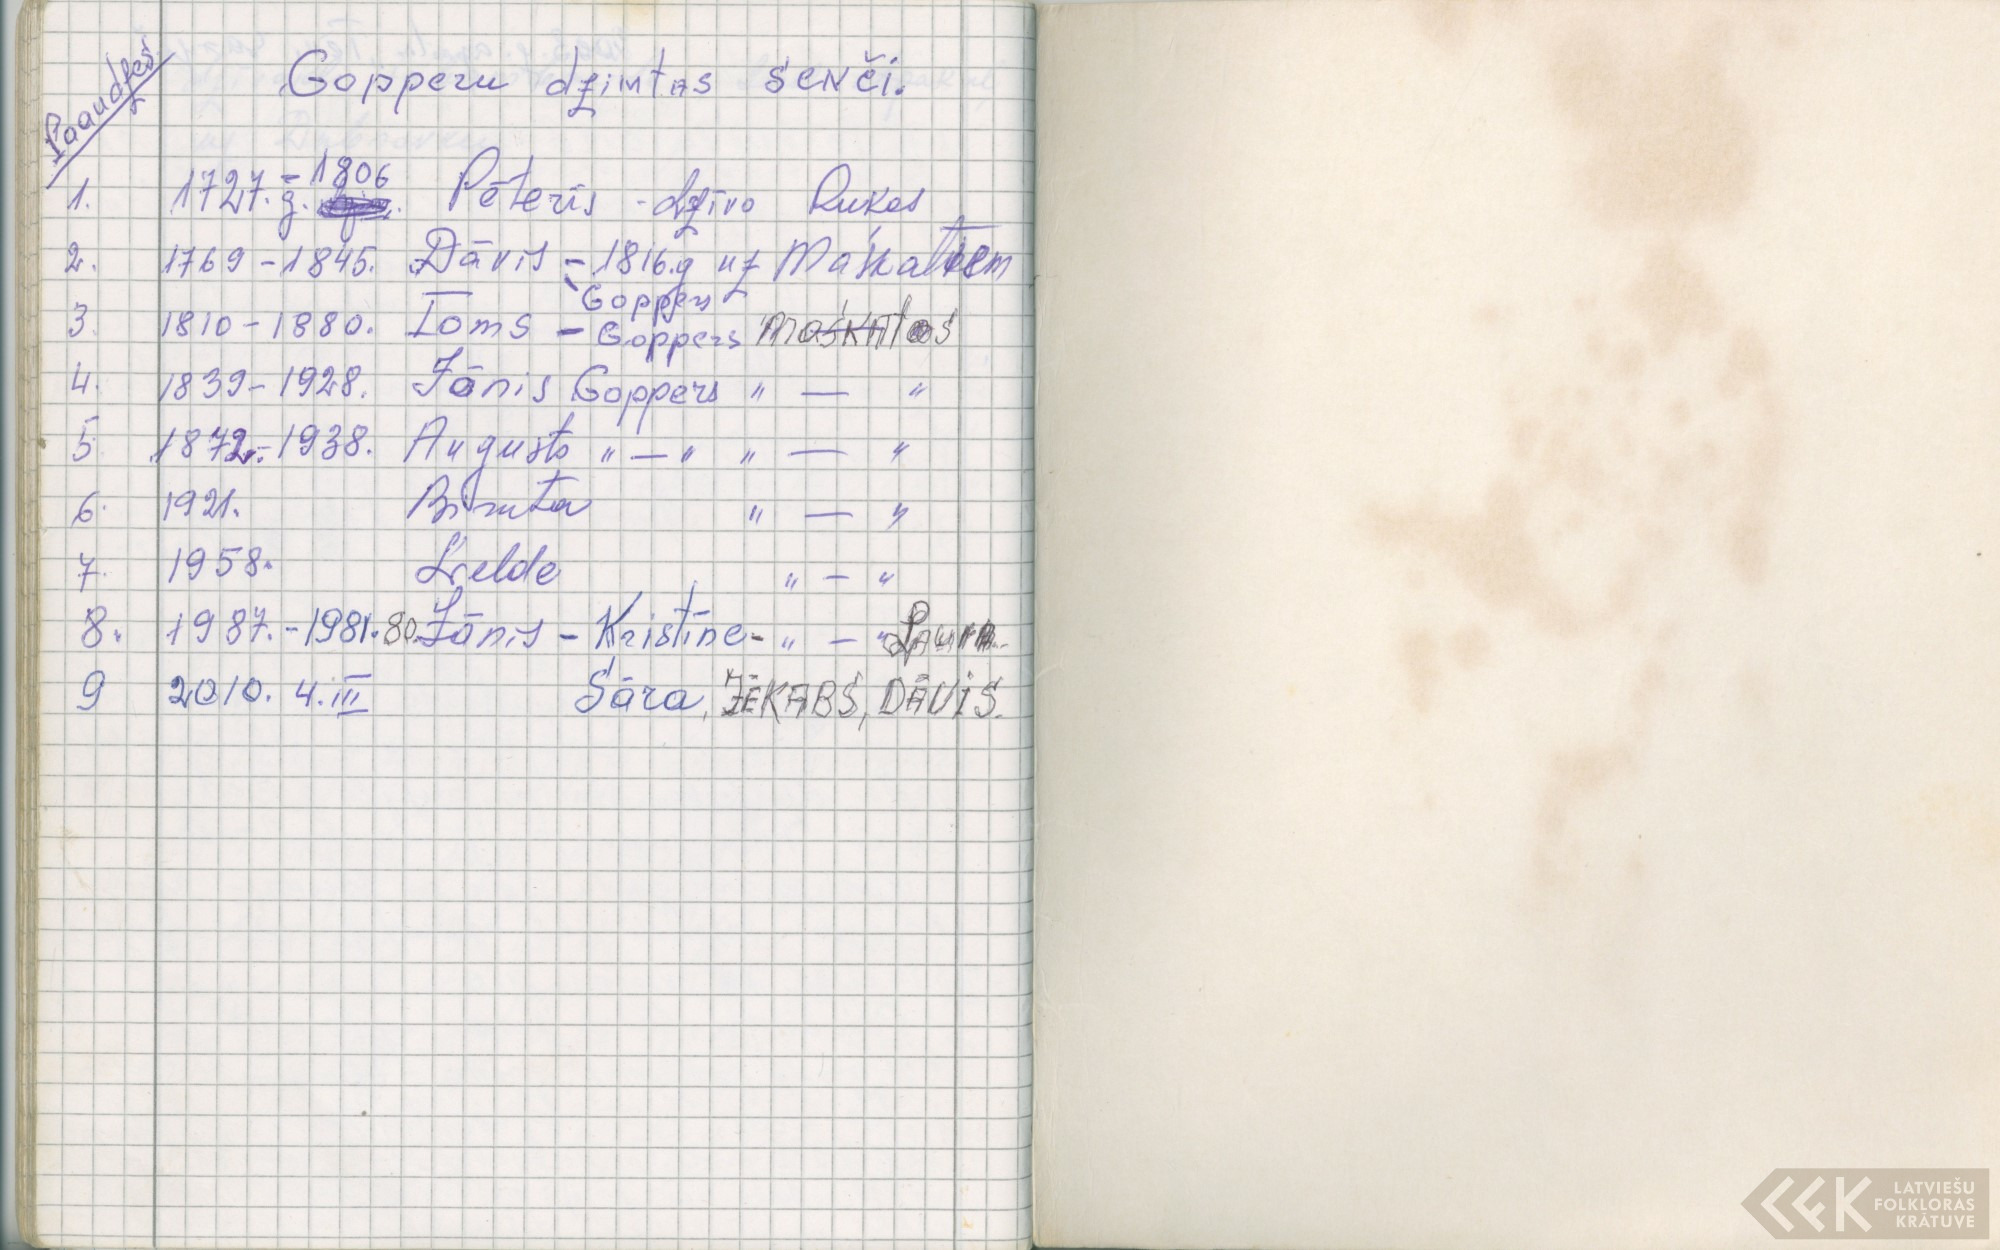 Paaudzes
Gopperu dzimtas senči.
1. 1727.g. - 1806 Pēteris - dzīvo Rukas
2. 1769 - 1845. Dāvis - 1816.g uz Maškatiem
Goppers
3. 1810 - 1880. Toms - Goppers Maškatos
4. 1839 - 1928. Jānis Goppers " — "
5. 1872. - 1938. Augusts " — " " — "
6. 1921. Biruta " — "
7. 1958. Zielde " — "
8. 1987. - 1981. 80. Jānis - Kristīne - " — " Laura
9 2010. 4. III Sāra, JĒKABS, DĀVIS.
LATVIEŠU
FOLKLORAS
KRĀTUVE